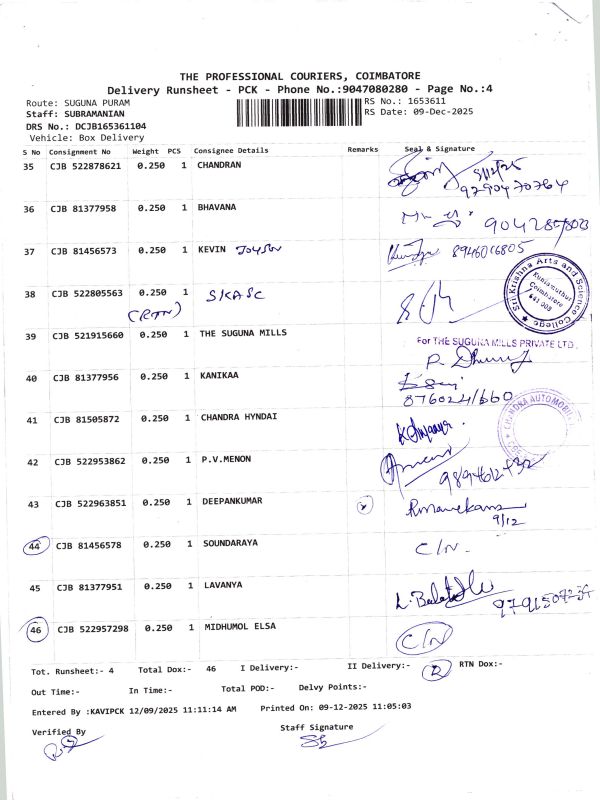 THE PROFESSIONAL COURIERS, COIMBATORE
Delivery Runsheet - PCK - Phone No.:9047080280 - Page No.:4
Route: SUGUNA PURAM
RS No.: 1653611
Staff: SUBRAMANIAN
RS Date: 09-Dec-2025
DRS No.: DCJB165361104
Vehicle: Box Delivery
S No Consignment No Weight PCS Consignee Details Remarks Seal & Signature
35 CJB 522878621 0.250 1 CHANDRAN 9/12/25
9790470764
36 CJB 81377958 0.250 1 BHAVANA
37 CJB 81456573 0.250 1 KEVIN 8946016805
38 CJB 522805563 0.250 1 SKASC
(RTN)
Sri Krishna Arts and Science College
Kuniamuthur
Coimbatore
641 008
39 CJB 521915660 0.250 1 THE SUGUNA MILLS For THE SUGUNA MILLS PRIVATE LTD.,
40 CJB 81377956 0.250 1 KANIKAA
41 CJB 81505872 0.250 1 CHANDRA HYNDAI
42 CJB 522953862 0.250 1 P.V.MENON
43 CJB 522963851 0.250 1 DEEPANKUMAR
9/12
44 CJB 81456578 0.250 1 SOUNDARAYA C/N.
45 CJB 81377951 0.250 1 LAVANYA
46 CJB 522957298 0.250 1 MIDHUMOL ELSA C/N
Tot. Runsheet:- 4 Total Dox:- 46 I Delivery:- II Delivery:- 2 RTN Dox:-
Out Time:- In Time:- Total POD:- Delvy Points:-
Entered By :KAVIPCK 12/09/2025 11:11:14 AM Printed On: 09-12-2025 11:05:03
Verified By Staff Signature